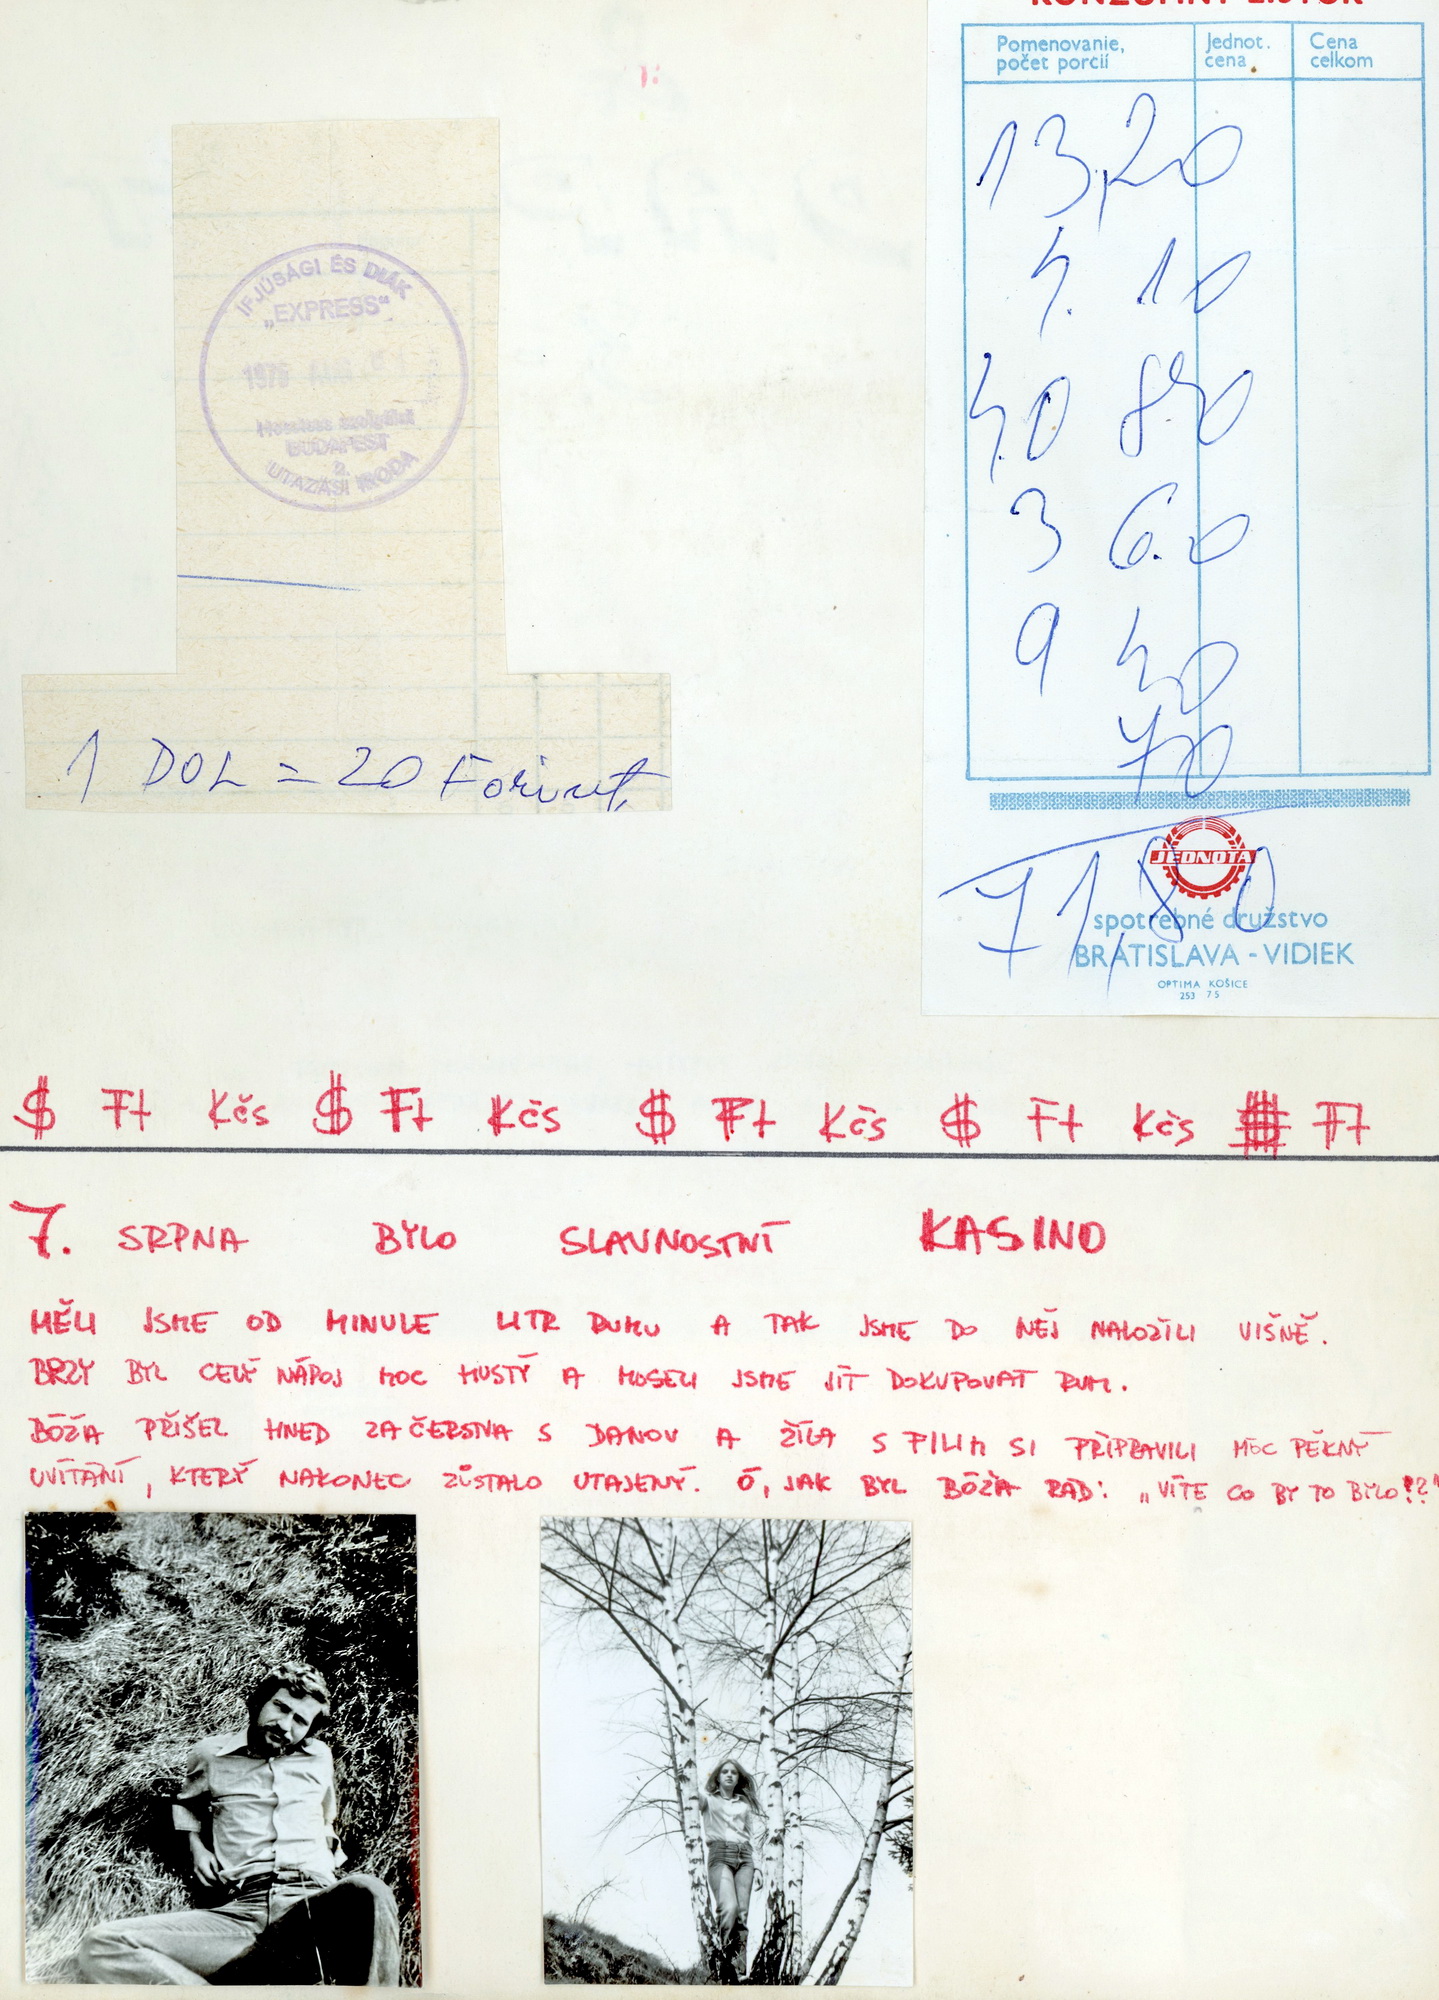 IFJÚSÁGI ÉS DIÁK
„EXPRESS“
1976
BUDAPEST
2.
UTAZÁSI IRODA
1 DOL = 20 Forint.
KONZUMNÝ LÍSTOK
Pomenovanie, počet porcií
Jednot. cena
Cena celkom
13,20
4. 10
40 8.40
3 6.0
9 40
40
71,80
JEDNOTA
spotrebné družstvo
BRATISLAVA - VIDIEK
OPTIMA KOŠICE
253 75
$ Ft Kčs $ Ft Kčs $ Ft Kčs $ Ft Kčs $ Ft
7. SRPNA BYLO SLAVNOSTNÍ KASINO
MĚLI JSME OD MINULE LITR RUMU A TAK JSME DO NĚJ NALOŽILI VIŠNĚ.
BRZY BYL CELÝ NÁPOJ MOC HUSTÝ A MUSELI JSME JÍT DOKUPOVAT RUM.
BÓŽA PŘIŠEL HNED ZA ČERSTVA S DANOU A ŽÍLA S FILIM SI PŘIPRAVILI MOC PĚKNÝ
UVÍTÁNÍ, KTERÝ NAKONEC ZŮSTALO UTAJENÝ. Ó, JAK BYL BÓŽA RÁD: „VÍTE CO BY TO BYLO!?“